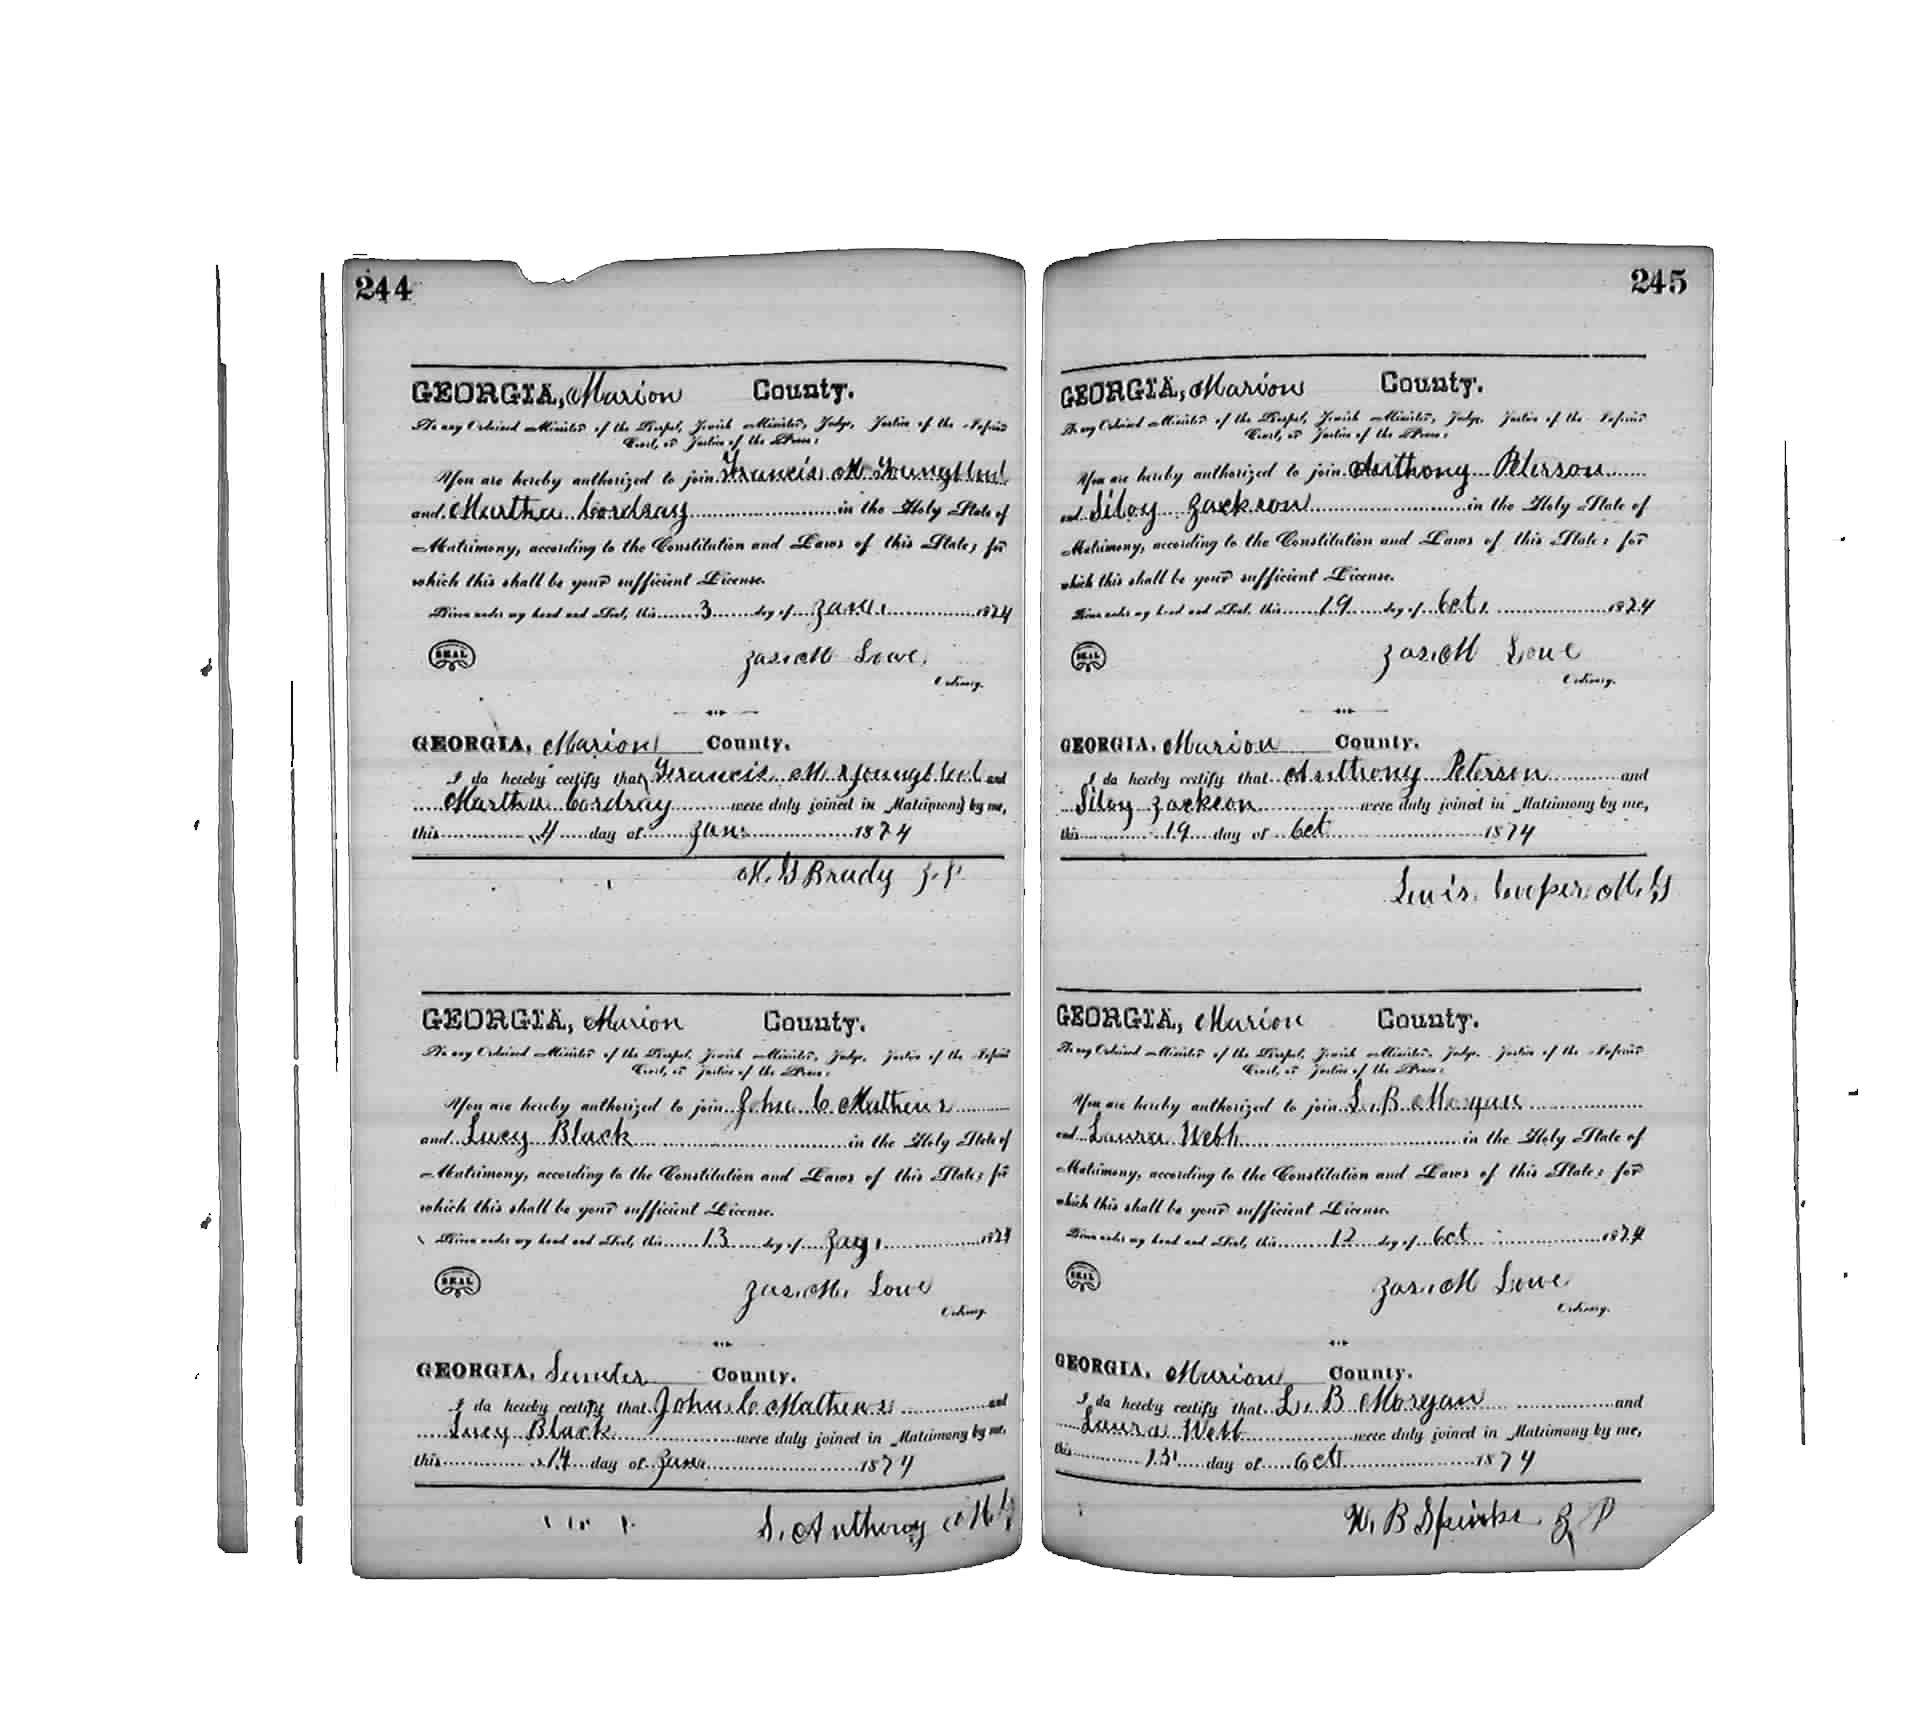 244
GEORGIA, Marion County.
To any Ordained Minister of the Gospel, Jewish Minister, Judge, Justice of the Inferior
Court, or Justice of the Peace:
You are hereby authorized to join Francis M Youngblood
and Martha Cordray in the Holy State of
Matrimony, according to the Constitution and Laws of this State; for
which this shall be your sufficient License.
Given under my hand and Seal, this 3 day of Jany. 1874
SEAL
Jas. M Lowe
Ordinary.
GEORGIA, Marion County.
I do hereby certify that Francis M Youngblood and
Martha Cordray were duly joined in Matrimony by me,
this 4 day of Jan. 1874
Brady J.P.
GEORGIA, Marion County.
To any Ordained Minister of the Gospel, Jewish Minister, Judge, Justice of the Inferior
Court, or Justice of the Peace:
You are hereby authorized to join John C Mathews
and Lucy Black in the Holy State of
Matrimony, according to the Constitution and Laws of this State; for
which this shall be your sufficient License.
Given under my hand and Seal, this 13 day of Jany. 1874
SEAL
Jas. M. Lowe
Ordinary.
GEORGIA, Sumter County.
I do hereby certify that John C Mathews and
Lucy Black were duly joined in Matrimony by me,
this 14 day of Jany 1874
S. Anthony M.G
245
GEORGIA, Marion County.
To any Ordained Minister of the Gospel, Jewish Minister, Judge, Justice of the Inferior
Court, or Justice of the Peace:
You are hereby authorized to join Anthony Peterson
and Siloy Jackson in the Holy State of
Matrimony, according to the Constitution and Laws of this State; for
which this shall be your sufficient License.
Given under my hand and Seal, this 19 day of Oct. 1874
SEAL
Jas. M Lowe
Ordinary.
GEORGIA, Marion County.
I do hereby certify that Anthony Peterson and
Siloy Jackson were duly joined in Matrimony by me,
this 19 day of Oct 1874
Lewis Cooper M.G
GEORGIA, Marion County.
To any Ordained Minister of the Gospel, Jewish Minister, Judge, Justice of the Inferior
Court, or Justice of the Peace:
You are hereby authorized to join L. B Morgan
and Laura Webb in the Holy State of
Matrimony, according to the Constitution and Laws of this State; for
which this shall be your sufficient License.
Given under my hand and Seal, this 12 day of Oct 1874
SEAL
Jas. M Lowe
Ordinary.
GEORGIA, Marion County.
I do hereby certify that L. B Morgan and
Laura Webb were duly joined in Matrimony by me,
this day of Oct 1874
W. B Spinks J P